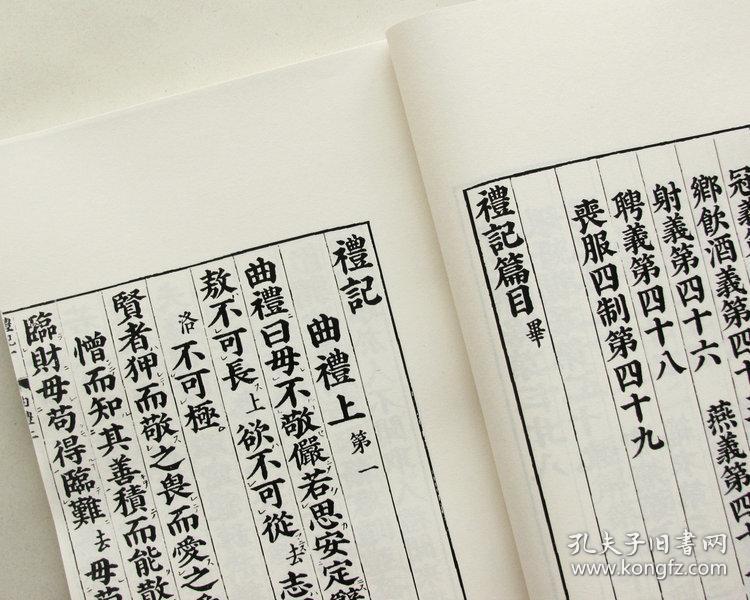 冠義第
鄉飲酒義第四十
射義第四十六
燕義第四十
聘義第四十八
喪服四制第四十九
禮記篇目畢
禮記
曲禮上第一
曲禮曰毋不敬儼若思安定辭
敖不可長上欲不可從去志
洛不可極
賢者狎而敬之畏而愛之
憎而知其善積而能散
臨財毋苟得臨難去毋苟
孔夫子旧书网
www.kongfz.com